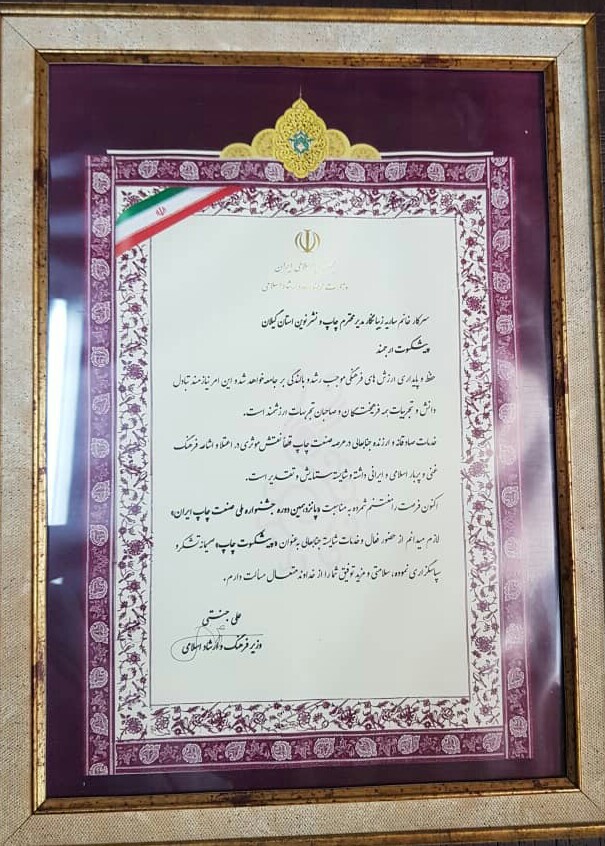 جمهوری اسلامی ایران
وزارت فرهنگ و ارشاد اسلامی
سرکار خانم ساریه زیبانگار مدیر محترم چاپ و نشر نوین استان گیلان
پیشکسوت ارجمند
حفظ و پایداری ارزش های فرهنگی موجب رشد و بالندگی بر جامعه خواهد شد و این امر نیازمند تبادل
دانش و تجربیات همه فرهیختگان و صاحبان تجربیات ارزشمند است.
خدمات صادقانه و ارزنده جنابعالی در عرصه صنعت چاپ قطعاً نقش موثری در اعتلا و اشاعه فرهنگ
غنی و پربار اسلامی و ایرانی داشته و شایسته ستایش و تقدیر است.
اکنون فرصت را مغتنم شمرده به مناسبت «پانزدهمین دوره جشنواره ملی صنعت چاپ ایران»
لازم میدانم از حضور فعال و خدمات شایسته جنابعالی به عنوان «پیشکسوت چاپ» صمیمانه تشکر و
سپاسگزاری نموده، سلامتی و مزید توفیق شما را از خداوند متعال مسألت دارم.
علی جنتی
وزیر فرهنگ و ارشاد اسلامی